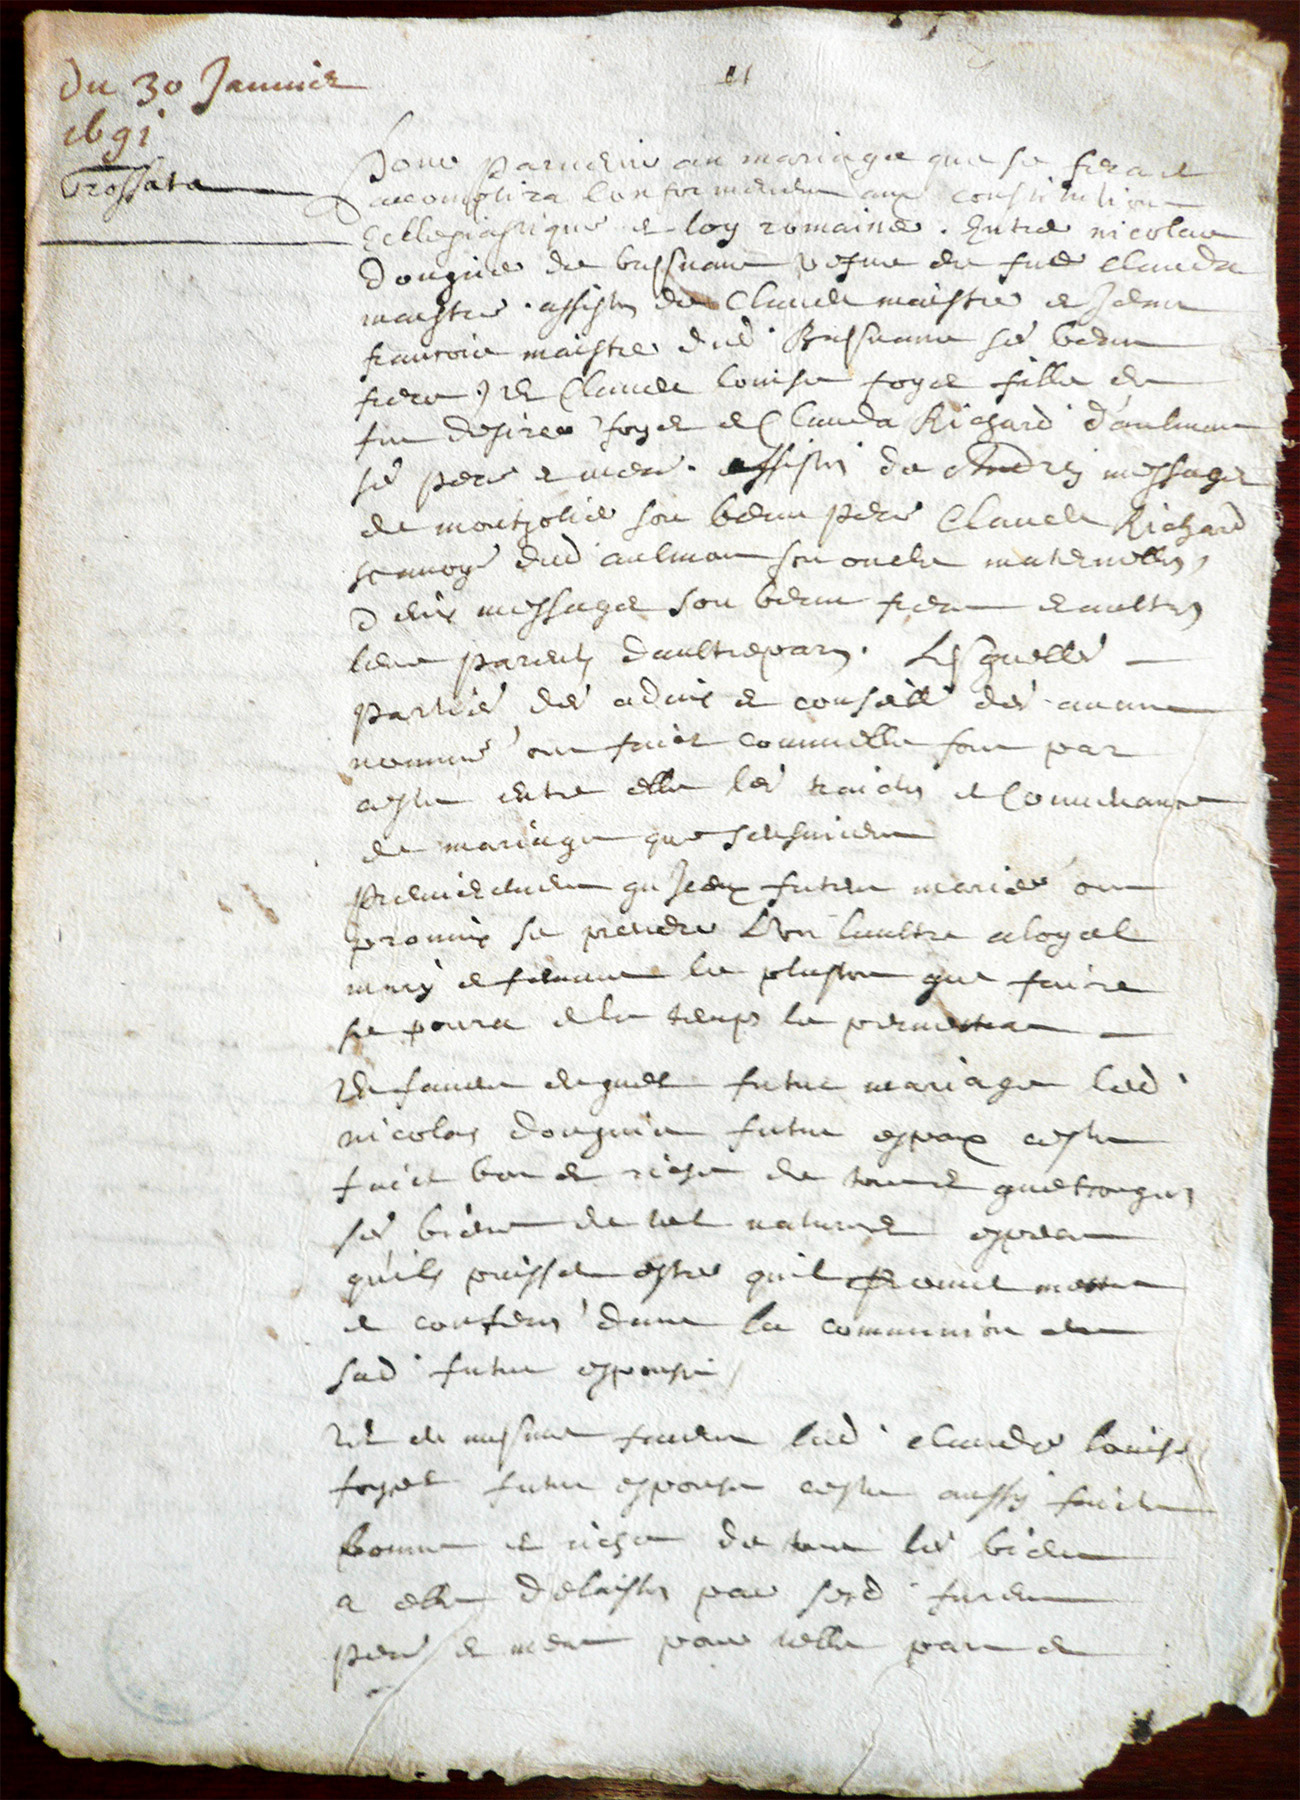 du 30 Januier
1691
Grossata
Pour paruenir au mariage que se fera et
accomplira conformement aux constitutions
Ecclesiastique et loy romaine. Entre nicolas
dougnie de bussuans vesue de fue Clauda
maistre. assiste de Claude maistre et Jean
francois maistre dud. Bussuans se beau
frere, et Claude louise foyet fille de
fue desirez foyet et Clauda Richard d'aulmon
se pere et mere. assiste de Andrez message
de montjolie son beau pere Claude Richard
dud aulmon son oncle maternelle,
message son beau frere et aultre
leur parents daultrepart. Lesquelle
partie de aduis et conseille des auant
nomme ont faict comme elle font par
ceste entre elle les traicte et conuenance
de mariage que sensuiuent
premierement qu Iceux futeur marie ont
promis se prendre L'un laultre a loyal
mary et femme le plustost que faire
se poura et le temps le permettra
En faueur duquel futur mariage led.
nicolas dougnie futur espoux ceste
faict bon et riche de tout et
se biens de tel nature et espece
quils puisse estre quil promet mettre
et confere dans la communion de
sad. futur espouse
Et de mesme faueur lad. claudze louise
foyet futur espouse ceste aussy faicte
bonne et riche de tout les biens
a elle delaisse par sesd. furent
pere et mere pour telle part et